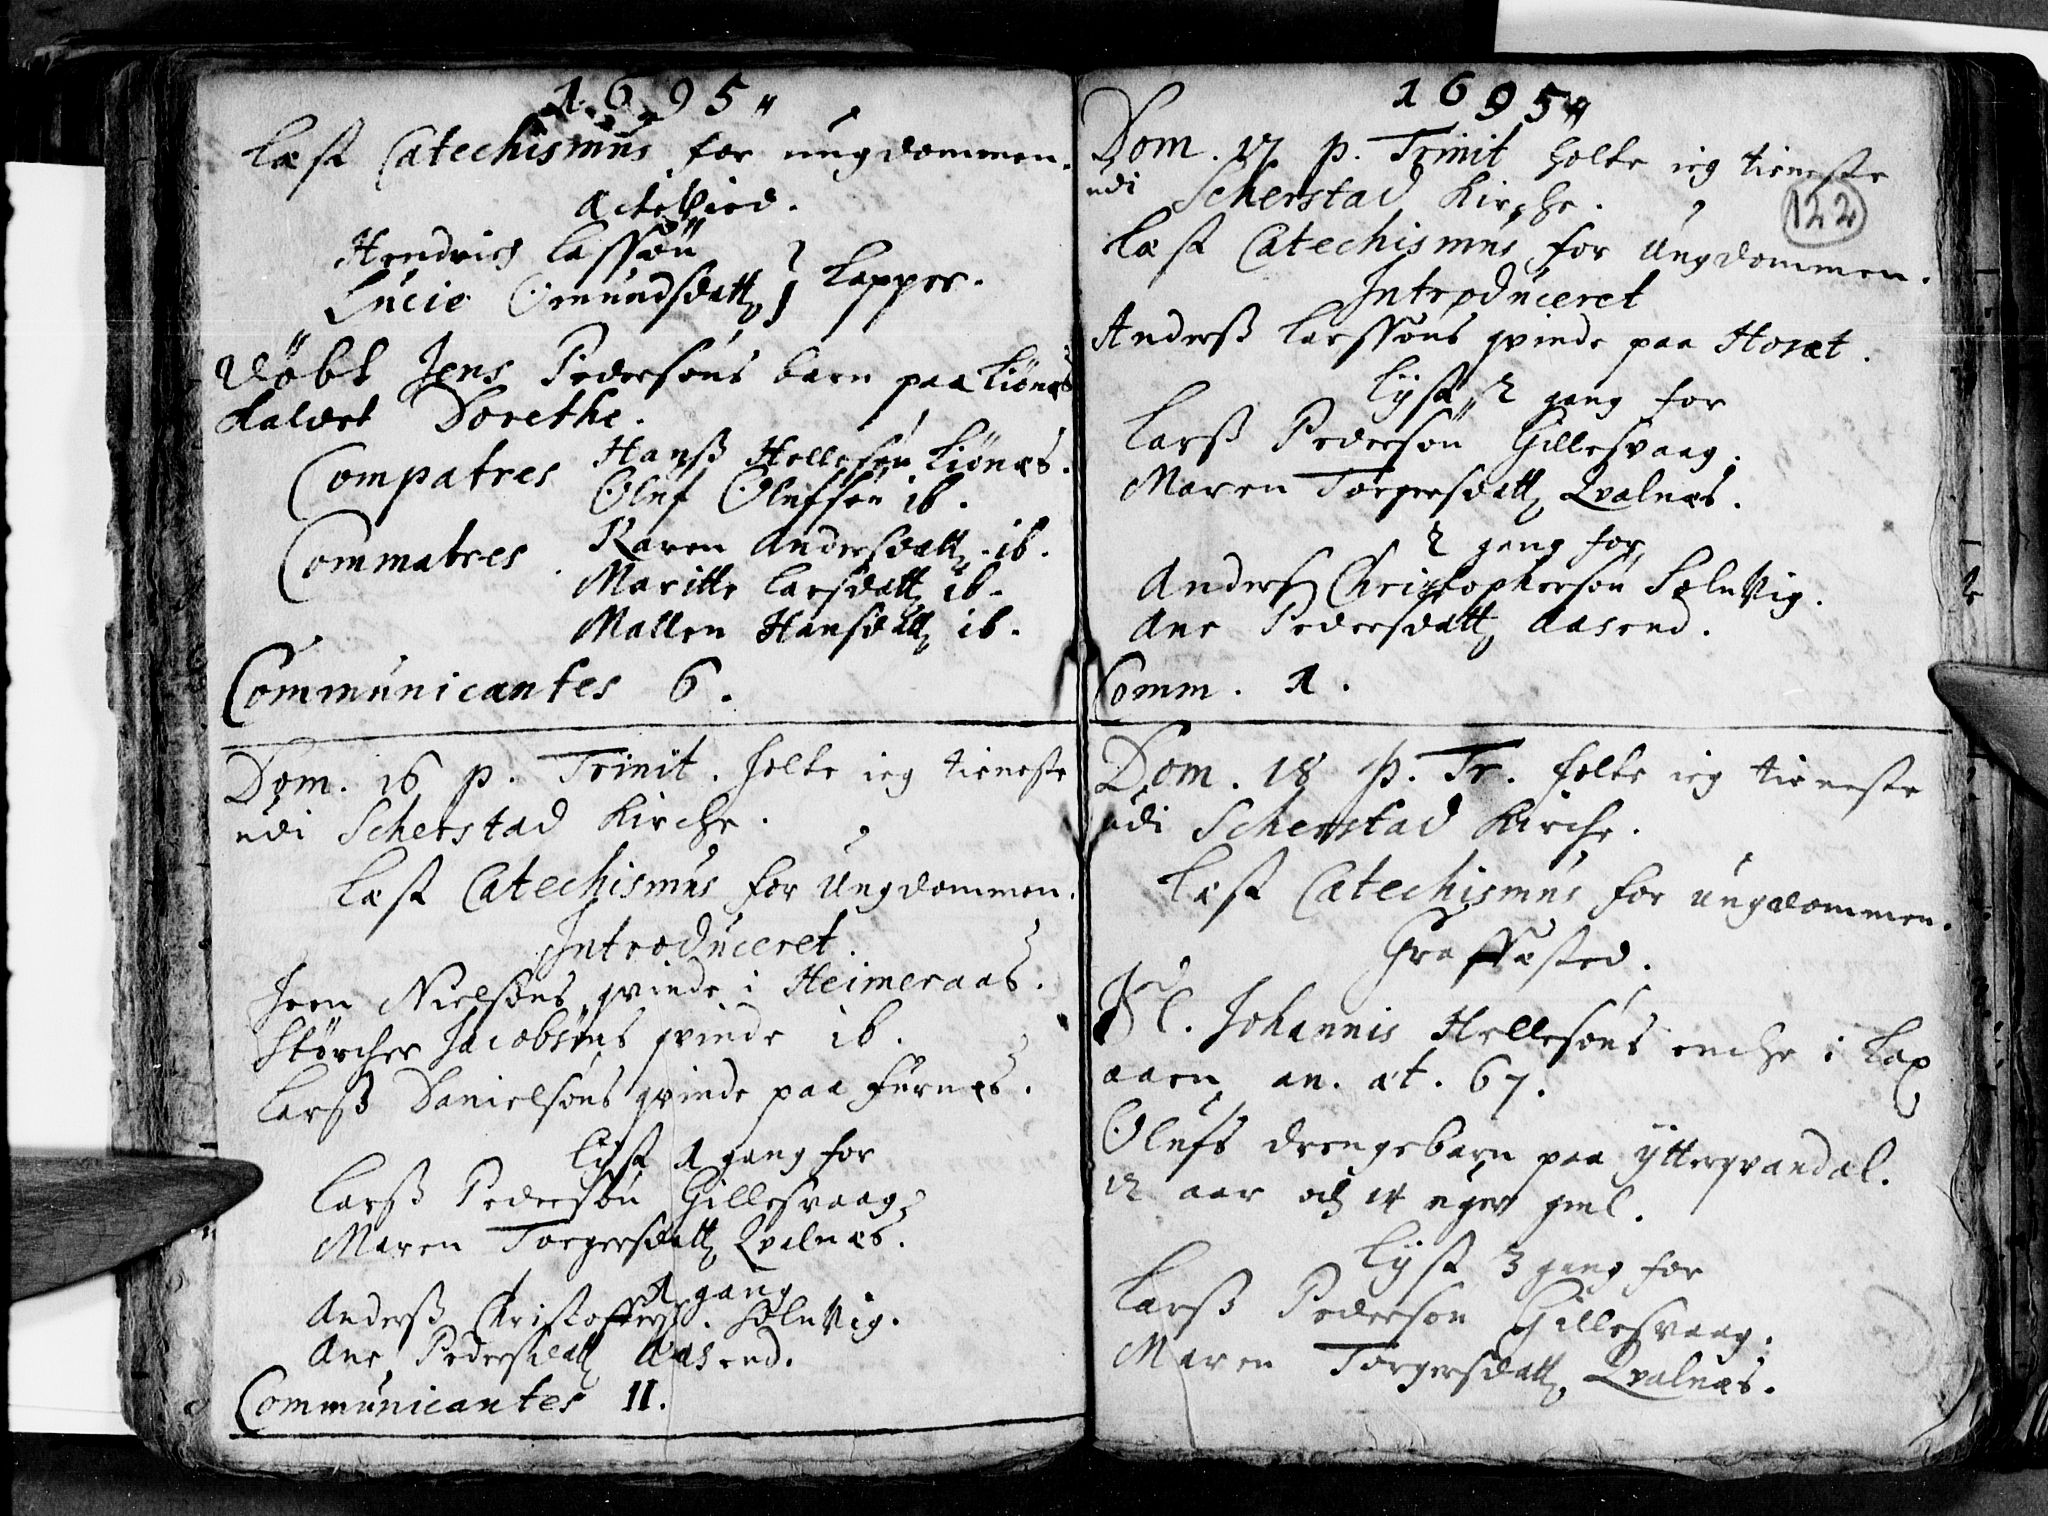 1695"
læst Catechismus for ungdommen.
Ächtevied.
Hendrich Lassön
Lucie Omundsdatt } Lapper.
Döbt Jens Pedersöns barn paa Liönæs
kaldet Dorethe.
Compatres Hanß Hellesön Liönæs.
Oluf Olufsön ib.
Commatres Karen Andersdatt. ib.
Maritte Larsdatt ib.
Mallen Hansdatt ib.
Communicantes 6.
Dom. 16 p. Trinit. holte ieg tieneste
udi Scherstad Kirche.
læst Catechismus for Ungdommen.
Introduceret.
Jens Nielsöns qvinde i Heimeraas.
Störcher Jacobsöns qvinde ib.
Larß Danielsöns qvinde paa Furnæs.
lyst 1 gang for
Larß Pedersön Gillesvaag.
Maren Torgersdatt Qvalnæs.
1 gang
Anderß Christoffers. Solnvig.
Ane Pedersdatt Aasend.
Communicantes 11.
1695"
122
Dom. 17. p. Trinit holte ieg tieneste
udi Scherstad Kirche.
læst Catechismus for Ungdommen.
Introduceret
Anderß Larssöns qvinde paa
lyst 2 gang for
Larß Pedersön Gillesvaag.
Maren Torgersdatt Qvalnæs.
2 gang for
Anders Christophersön Solnvig.
Ane Pedersdatt Aasend.
Comm. 1.
Dom. 18 p. Tr. holte ieg tieneste
udi Scherstad Kirche.
læst Catechismus for ungdommen.
Graffæsted.
Sl. Johannis Hellesöns enche i Lax
aaen an. æt. 67.
Olufs drengebarn paa ytterqvandal.
2 aar och 14 uger gml.
lyst 3 gang for
Larß Pedersön Gillesvaag.
Maren Torgersdatt Qvalnæs.